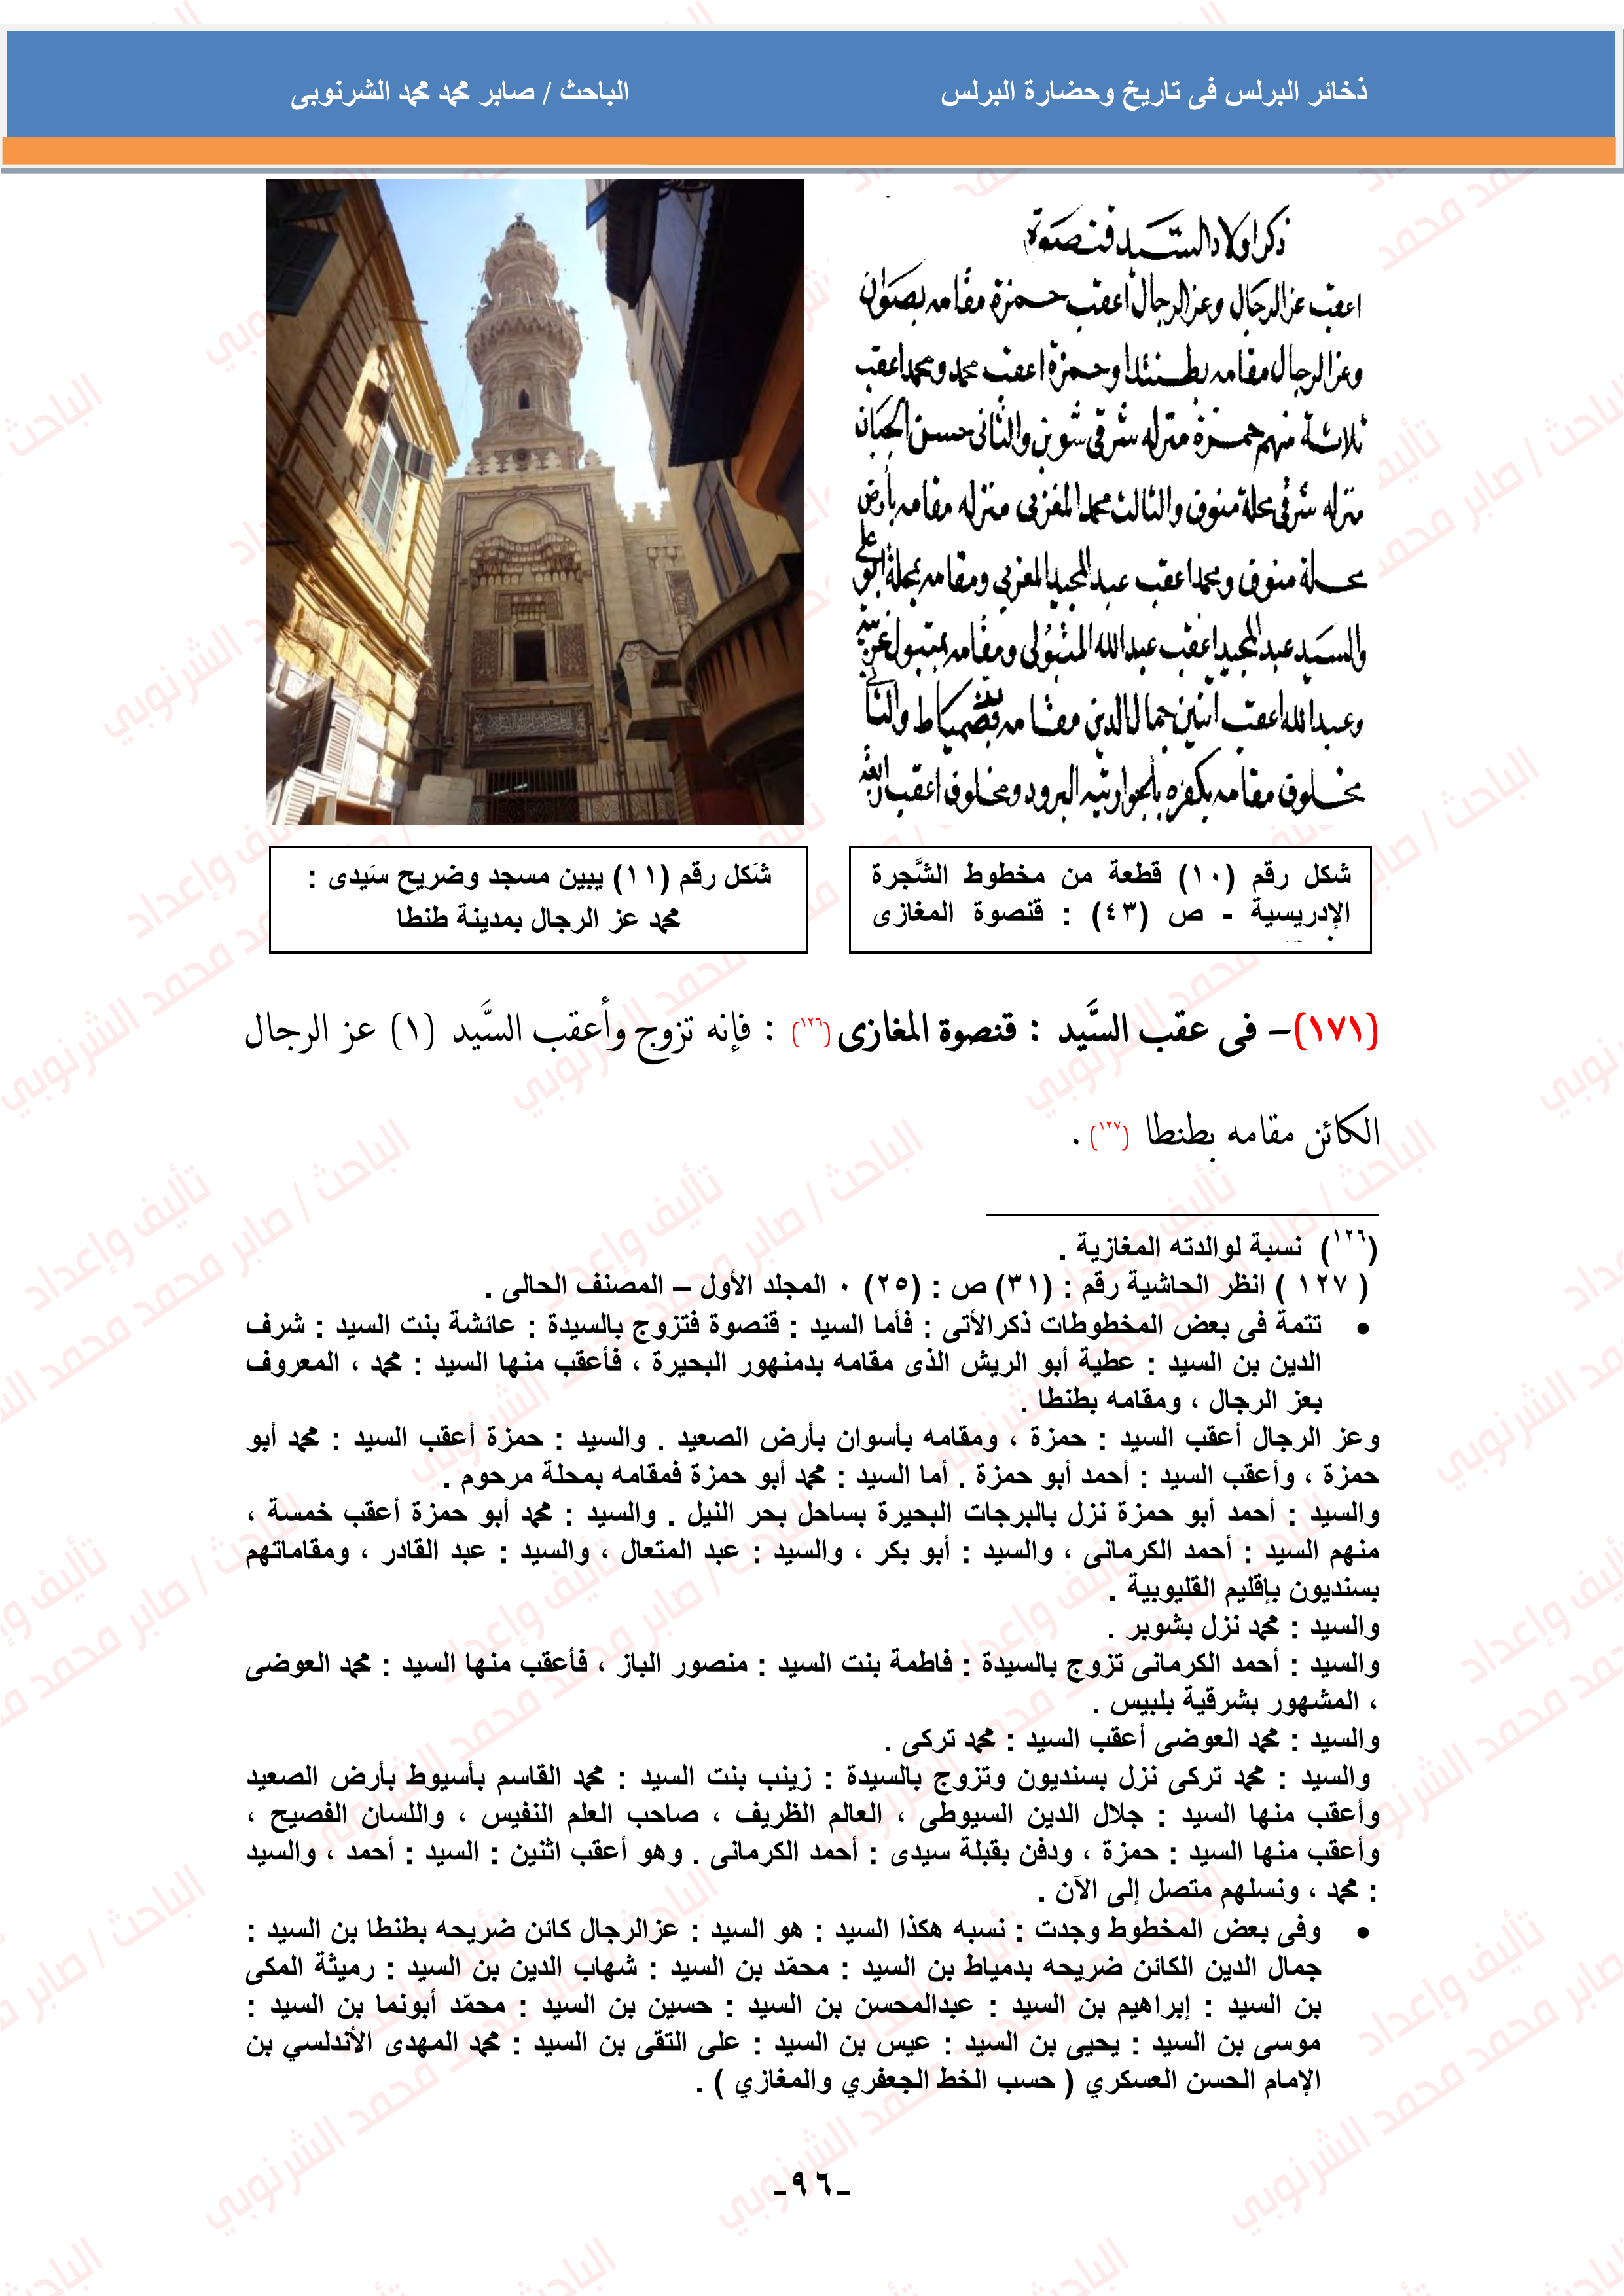 ذخائر البرلس فى تاريخ وحضارة البرلس
الباحث / صابر محمد محمد الشرنوبى
ذكر اولاد السيد قنصوة
اعقب عز الرجال وعز الرجال اعقب حمزة مقامه بصوان
وعز الرجال مقامه بطنتدا وحمزة اعقب محمد ومحمد اعقب
ثلاثة منهم حمزة منزله شرقي شوبر والثانى حسن
منزله شرقي محلة منوف والثالث محمد المغزبى منزله مقامه بأرض
محلة منوف ومحمد اعقب عبد المجيد المغزبى ومقامه بمحلة
والسيد عبد المجيد اعقب عبد الله المتبولى ومقامه بمتبول
وعبد الله اعقب اثنين جمال الدين مقامه دمياط
مخلوف مقامه بكفره البرود ومخلوف اعقب
شكل رقم (١٠) قطعة من مخطوط الشَّجرة
الإدريسية - ص (٤٣) : قنصوة المغازى
شَكل رقم (١١) يبين مسجد وضريح سَيدى :
محمد عز الرجال بمدينة طنطا
(١٧١)– فى عقب السَّيد : قنصوة المغازى (١٢٦) : فإنه تزوج وأعقب السَّيد (١) عز الرجال
الكائن مقامه بطنطا (١٢٧) .
(١٢٦) نسبة لوالدته المغازية .
( ١٢٧ ) انظر الحاشية رقم : (٣١) ص : (٢٥) ٠ المجلد الأول – المصنف الحالى .
• تتمة فى بعض المخطوطات ذكرالأتى : فأما السيد : قنصوة فتزوج بالسيدة : عائشة بنت السيد : شرف
الدين بن السيد : عطية أبو الريش الذى مقامه بدمنهور البحيرة ، فأعقب منها السيد : محمد ، المعروف
بعز الرجال ، ومقامه بطنطا .
وعز الرجال أعقب السيد : حمزة ، ومقامه بأسوان بأرض الصعيد . والسيد : حمزة أعقب السيد : محمد أبو
حمزة ، وأعقب السيد : أحمد أبو حمزة . أما السيد : محمد أبو حمزة فمقامه بمحلة مرحوم .
والسيد : أحمد أبو حمزة نزل بالبرجات البحيرة بساحل بحر النيل . والسيد : محمد أبو حمزة أعقب خمسة ،
منهم السيد : أحمد الكرمانى ، والسيد : أبو بكر ، والسيد : عبد المتعال ، والسيد : عبد القادر ، ومقاماتهم
بسنديون بإقليم القليوبية .
والسيد : محمد نزل بشوبر .
والسيد : أحمد الكرمانى تزوج بالسيدة : فاطمة بنت السيد : منصور الباز ، فأعقب منها السيد : محمد العوضى
، المشهور بشرقية بلبيس .
والسيد : محمد العوضى أعقب السيد : محمد تركى .
والسيد : محمد تركى نزل بسنديون وتزوج بالسيدة : زينب بنت السيد : محمد القاسم بأسيوط بأرض الصعيد
وأعقب منها السيد : جلال الدين السيوطى ، العالم الظريف ، صاحب العلم النفيس ، واللسان الفصيح ،
وأعقب منها السيد : حمزة ، ودفن بقبلة سيدى : أحمد الكرمانى . وهو أعقب اثنين : السيد : أحمد ، والسيد
: محمد ، ونسلهم متصل إلى الآن .
• وفى بعض المخطوط وجدت : نسبه هكذا السيد : هو السيد : عزالرجال كائن ضريحه بطنطا بن السيد :
جمال الدين الكائن ضريحه بدمياط بن السيد : محمّد بن السيد : شهاب الدين بن السيد : رميثة المكى
بن السيد : إبراهيم بن السيد : عبدالمحسن بن السيد : حسين بن السيد : محمّد أبونما بن السيد :
موسى بن السيد : يحيى بن السيد : عيس بن السيد : على التقى بن السيد : محمد المهدى الأندلسي بن
الإمام الحسن العسكري ( حسب الخط الجعفري والمغازي ) .
-٩٦-
تأليف وإعداد
الباحث / صابر محمد محمد الشرنوبي